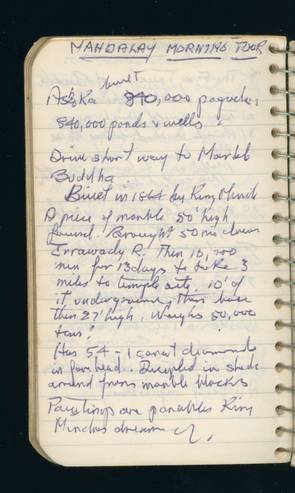 MANDALAY MORNING TOUR
built
Asoka 840,000 pagodas
840,000 ponds & wells.
Drive short way to Marble
Buddha
Built in 1864 by King Mindo
A piece of marble 50' high
found. Brought 50 mi down
Errawady R. Then 10,000
men for 13 days to take 3
miles to temple site. 10' of
it underground, then base
then 27' high. Weighs 50,000
tons!
Has 54 - 1 carat diamonds
in forehead. in shade
around from marble blocks
Paintings are parables King
Mindos dream